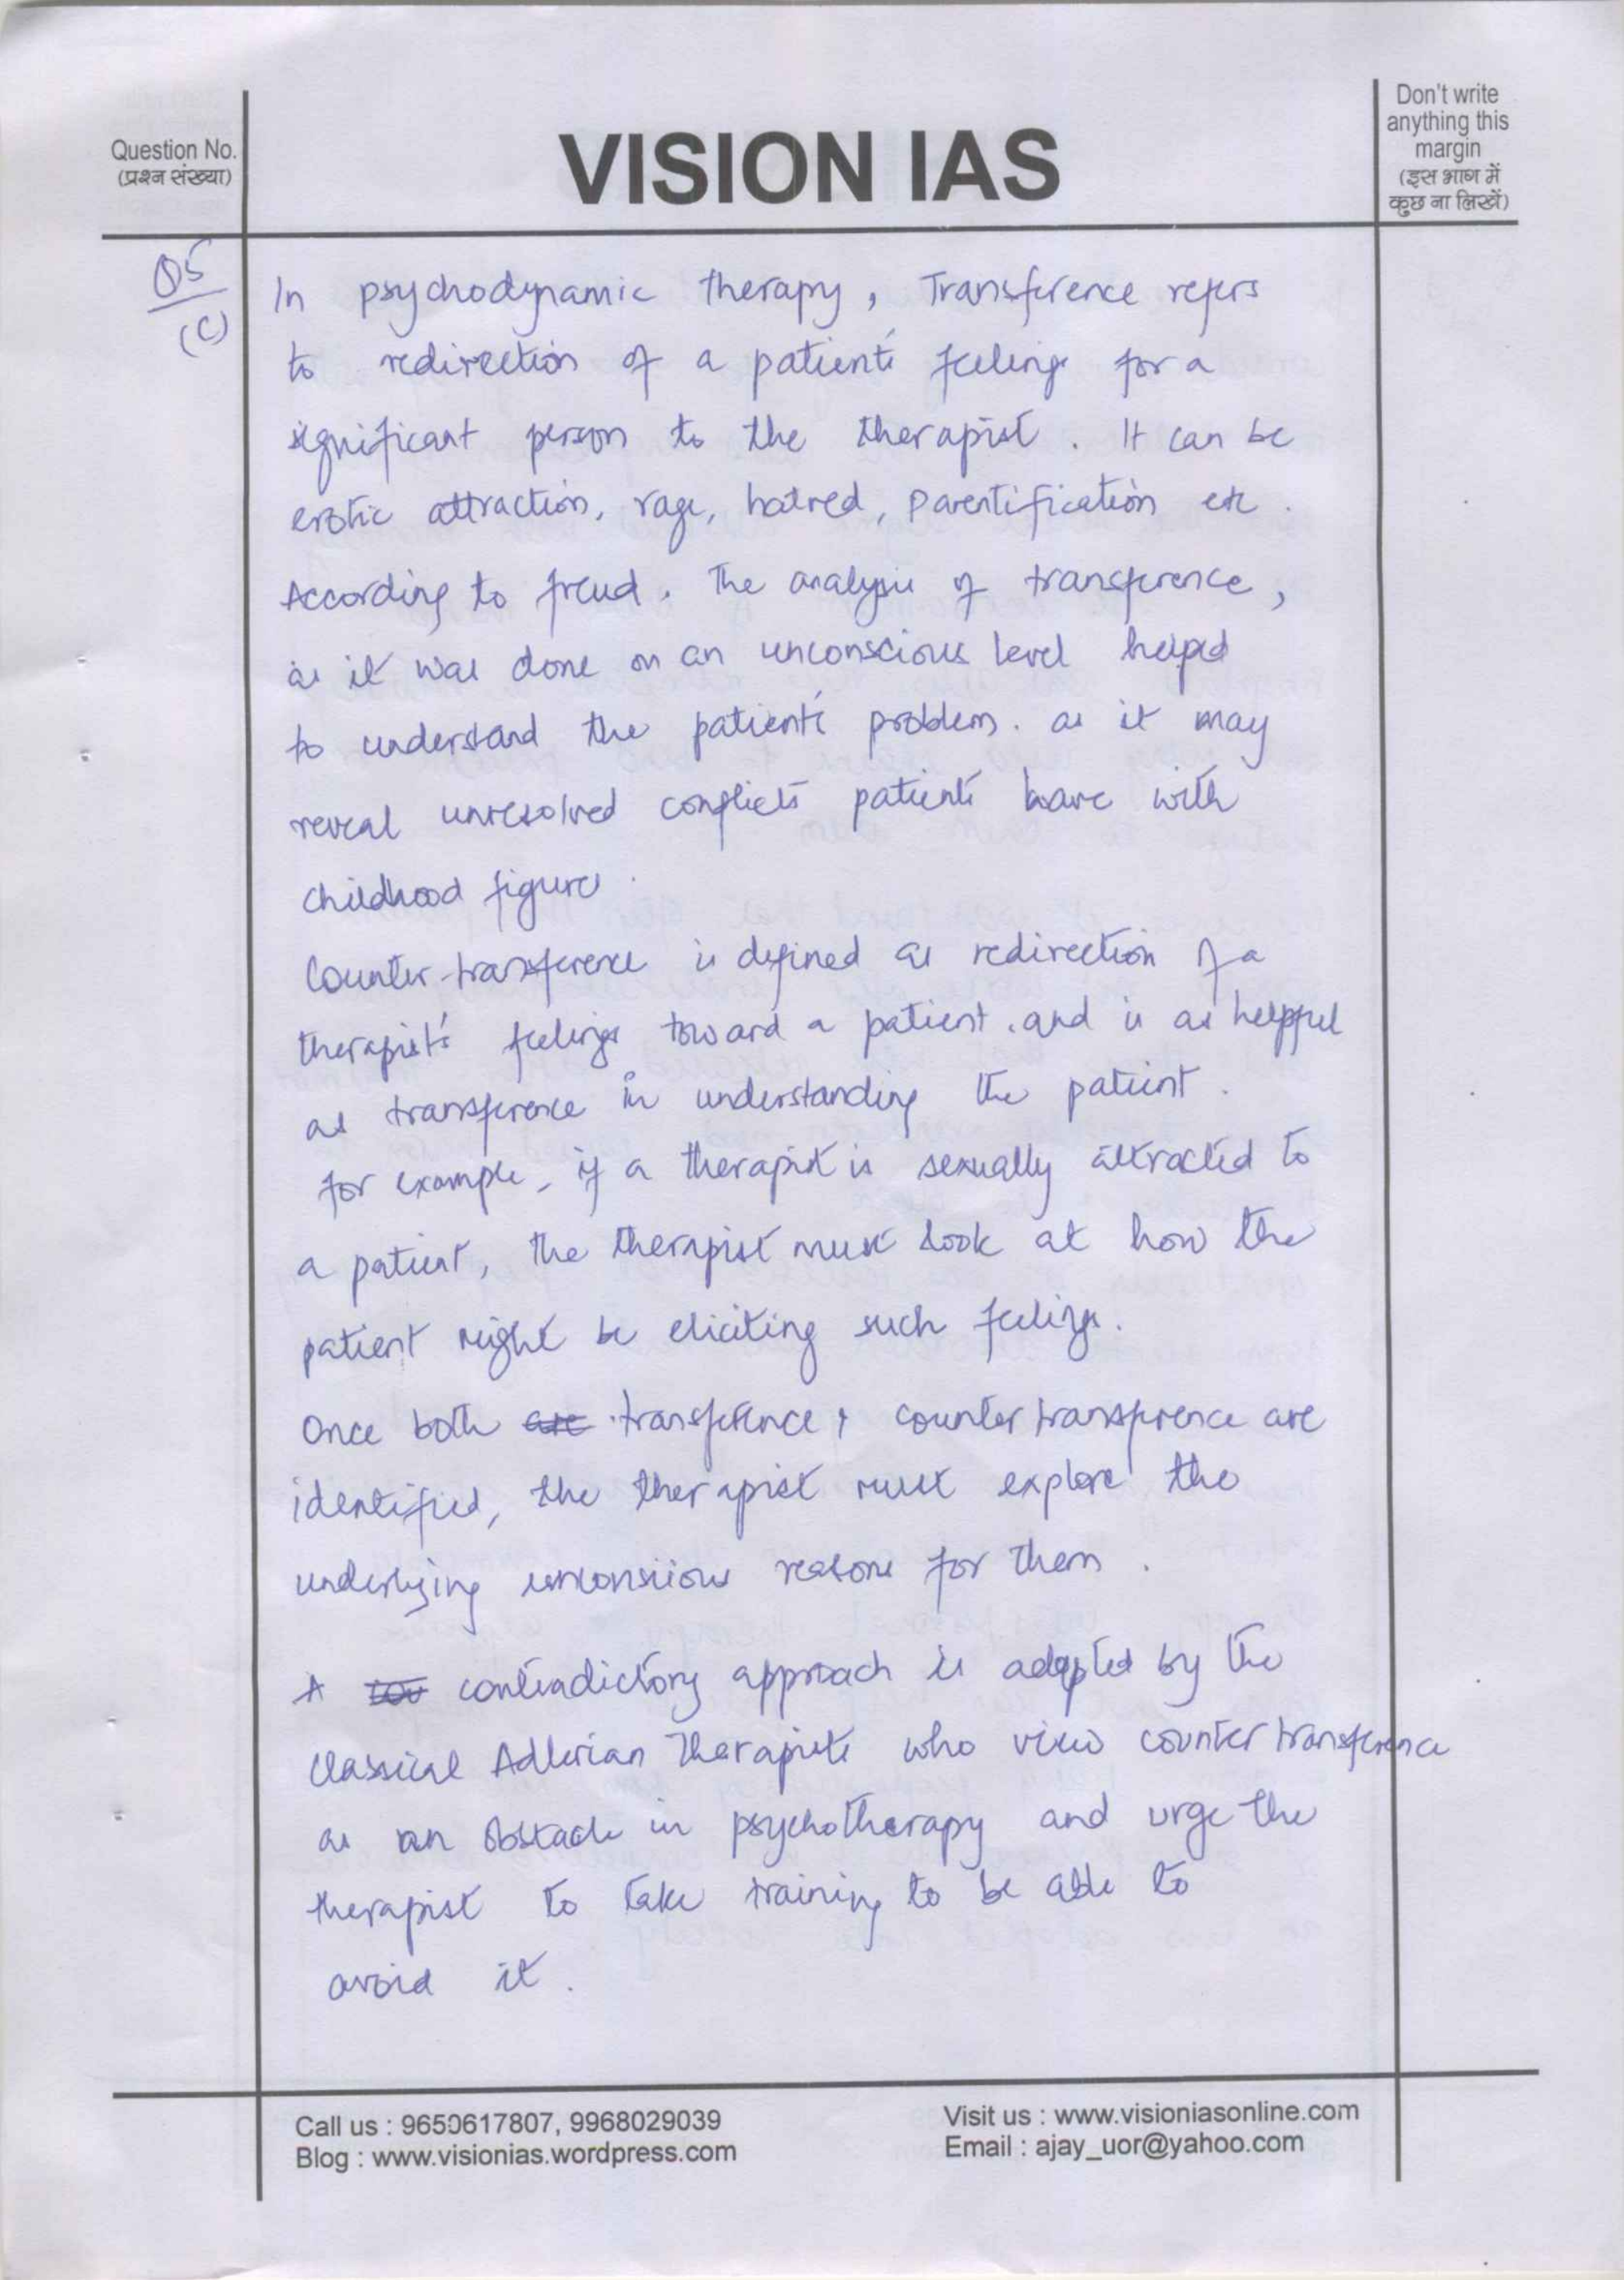 Question No.
(प्रश्न संख्या)
VISION IAS
Don't write
anything this
margin
(इस भाग में
कुछ ना लिखें)
Q5
(C)
In psychodynamic therapy, Transference refers
to redirection of a patient's feelings for a
significant person to the therapist. It can be
erotic attraction, rage, hatred, parentification etc.
According to freud. The analysis of transference,
as it was done on an unconscious level helped
to understand the patient's problem. as it may
reveal unresolved conflicts patients have with
childhood figures.
Counter-transference is defined as redirection of a
therapist's feelings toward a patient. and is as helpful
as transference in understanding the patient.
for example, if a therapist is sexually attracted to
a patient, the therapist must look at how the
patient might be eliciting such feelings.
Once both are transference & counter transference are
identified, the therapist must explore the
underlying unconsiious reasons for them.
A contradictory approach is adopted by the
classical Adlerian Therapists who view counter transference
as an obstacle in psychotherapy and urge the
therapist to take training to be able to
avoid it.
Call us : 9650617807, 9968029039
Blog : www.visionias.wordpress.com
Visit us : www.visioniasonline.com
Email : ajay_uor@yahoo.com